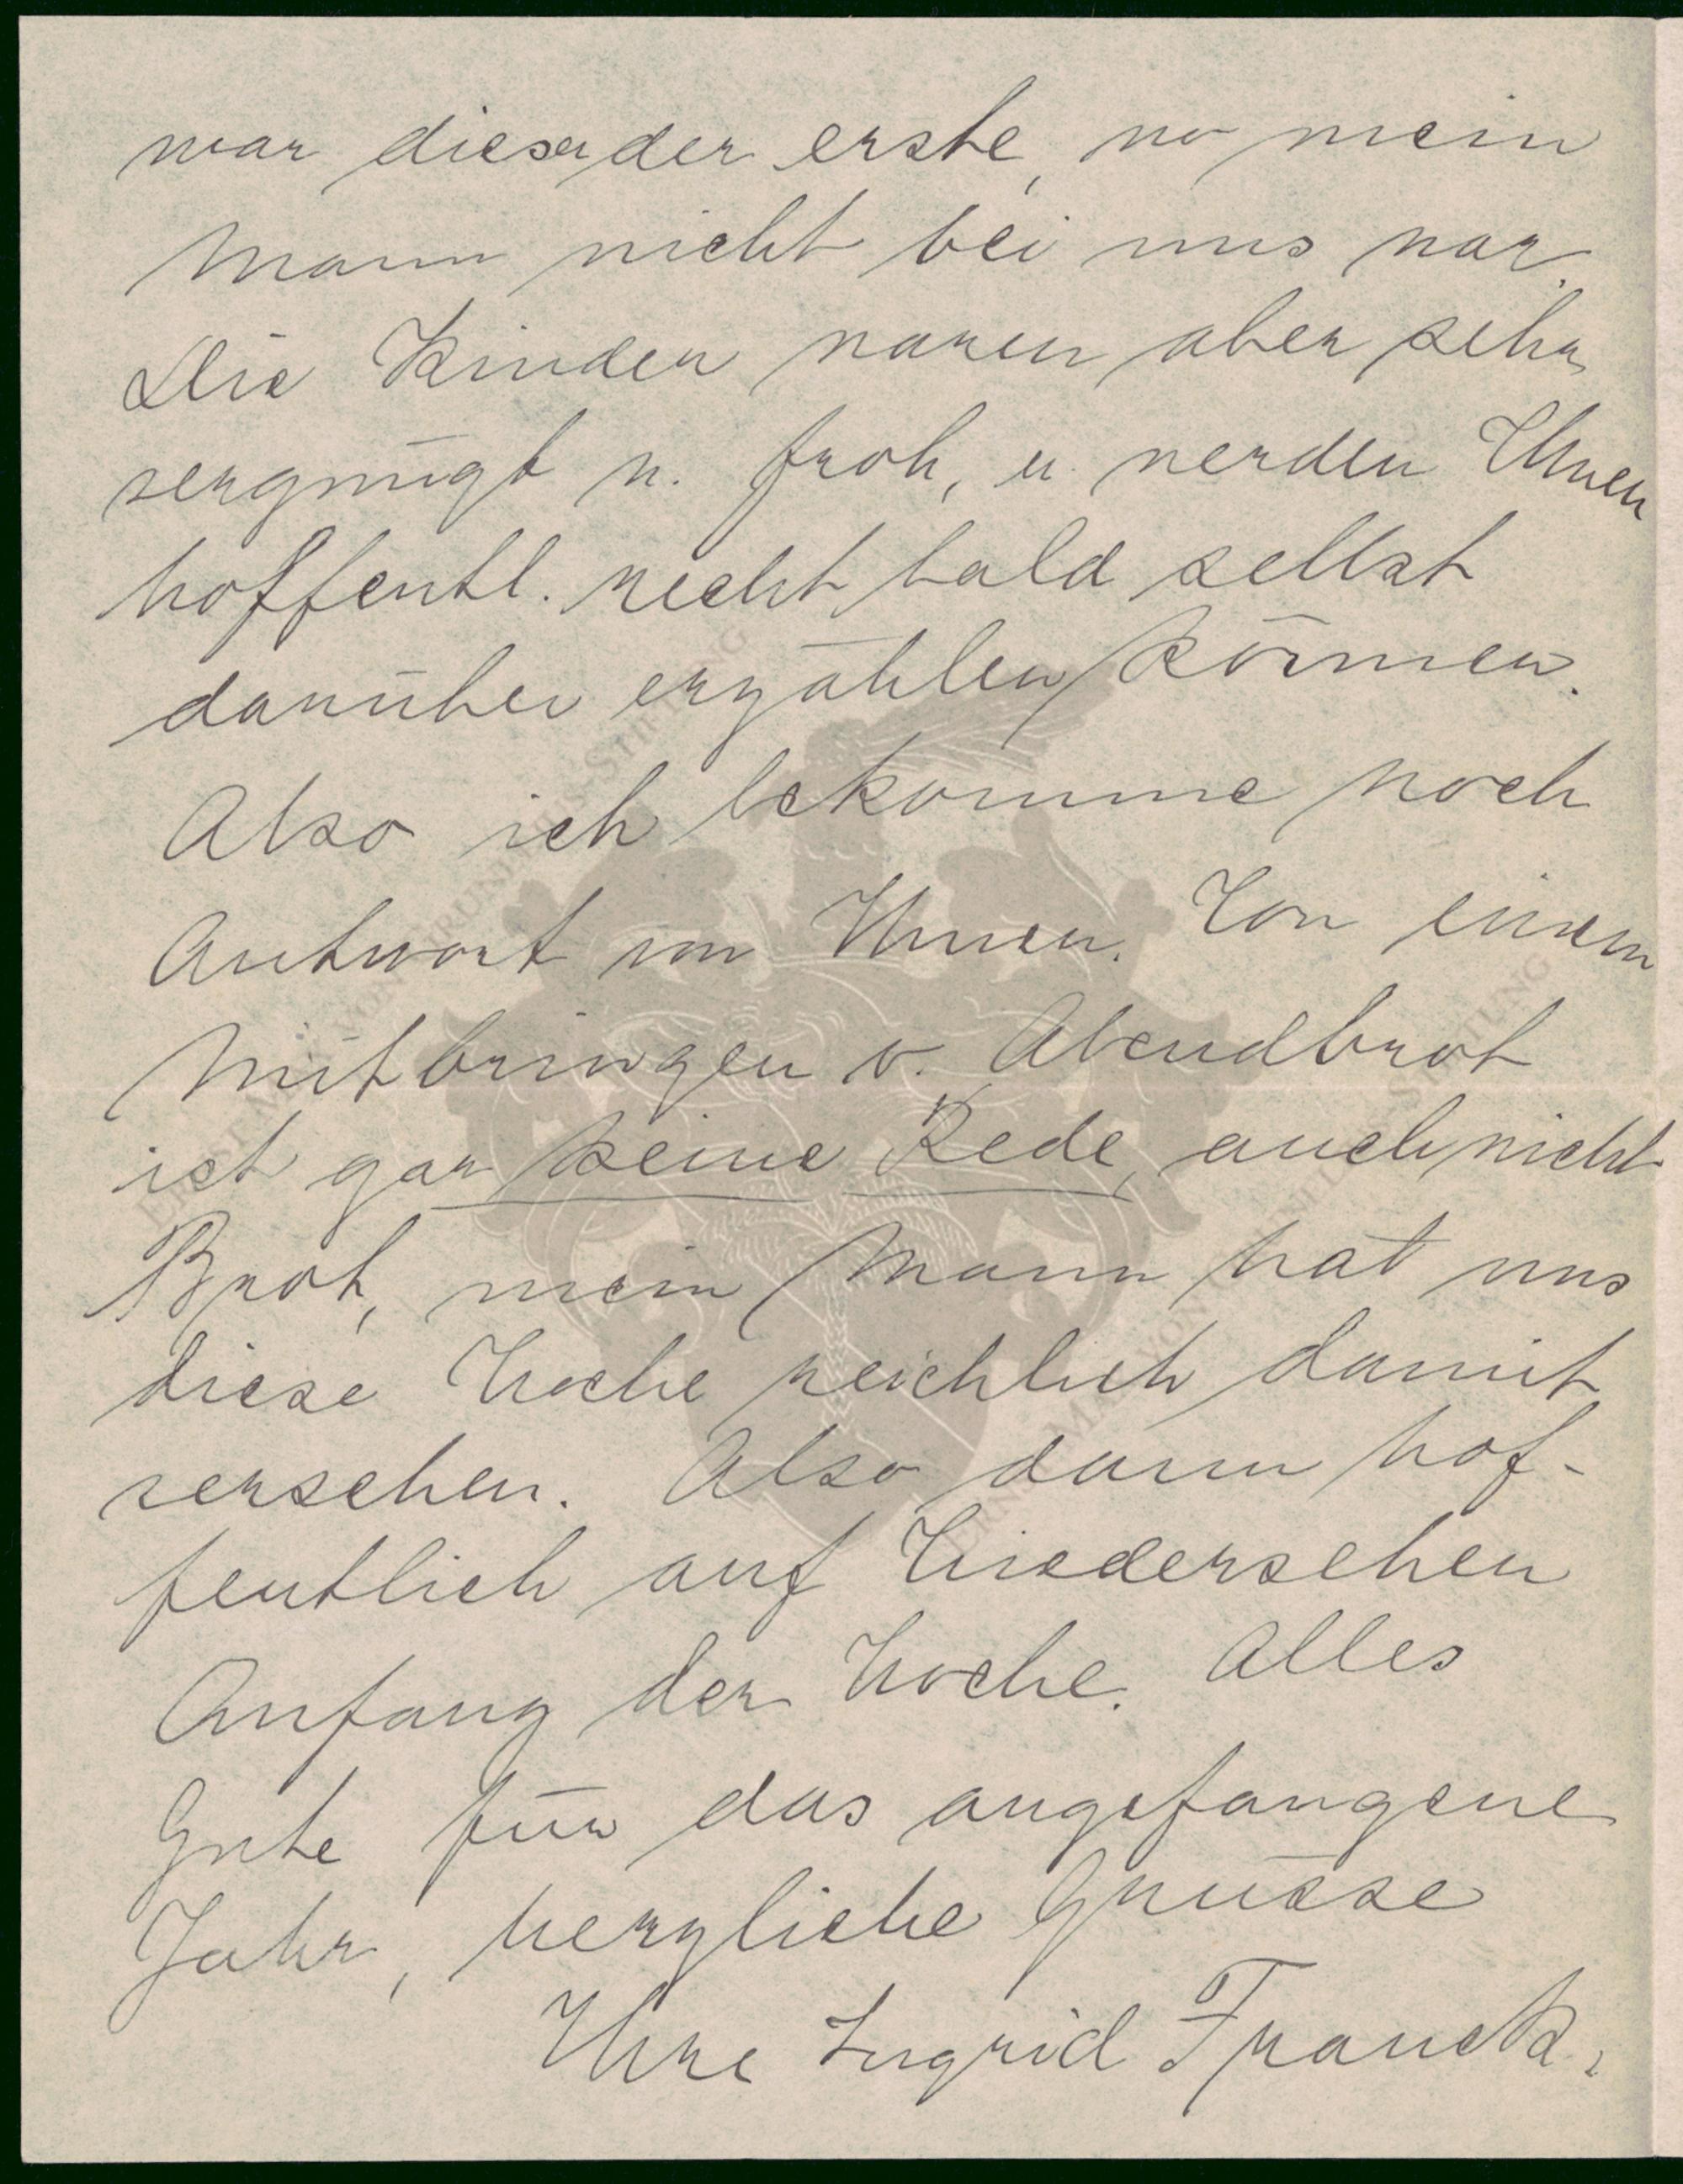 war dieser der erste, wo mein
Mann nicht bei uns war.
Die Kinder waren aber sehr
vergnügt u. froh, u. werden Ihnen
hoffentl. recht bald selbst
darüber erzählen können.
Also ich bekomme noch
Antwort von Ihnen. Von einem
Mitbringen v. Abendbrot
ist gar keine Rede, auch nicht
Brot, mein Mann hat uns
diese Woche reichlich damit
versehen. Also dann hof-
fentlich auf Wiedersehen
Anfang der Woche. Alles
Gute für das angefangene
Jahr, herzliche Grüsse
Ihre Ingrid Franck.